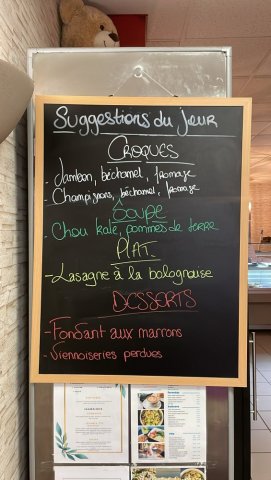 Suggestions du Jour
CROQUES
- Jambon, béchamel, fromage
- Champignons, béchamel, fromage
Soupe
- Chou kale, pommes de terre
PLAT
- Lasagne à la bolognaise
DESSERTS
- Fondant aux marrons
- Viennoiseries perdues